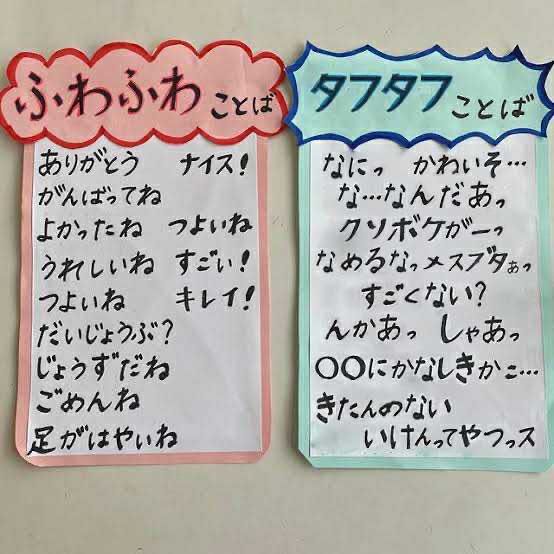 ふわふわ ことば
ありがとう ナイス!
がんばってね
よかったね つよいね
うれしいね すごい!
つよいね キレイ!
だいじょうぶ?
じょうずだね
ごめんね
足がはやいね
タフタフ ことば
なにっ かわいそ…
な…なんだあっ
クソボケがーっ
なめるなっメスブタぁっ
すごくない?
んかあっ しゃあっ
〇〇にかなしきかこ…
きたんのない
いけんってやつっス